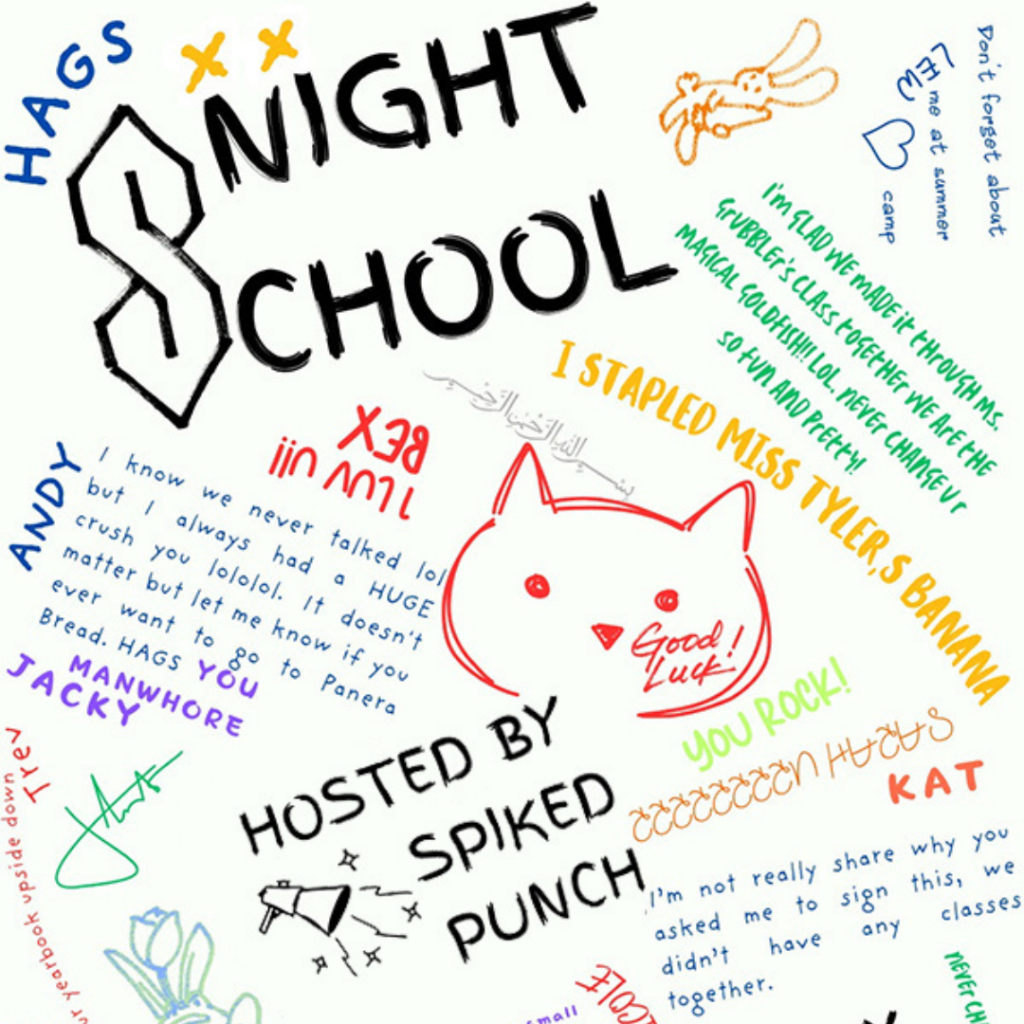 HAGS
NIGHT
SCHOOL
Don't forget about
me at summer
camp
I'm GLAD WE MADE it tHROUGH MS.
GrUBBLEr's CLASS tOGEtHEr WE ARE tHE
MAGICAL GOLDFISH!! LOL. nEVEr CHANGE Ur
SO fUN AND PrEtty!
I STAPLED MISS TYLER,S BANANA
بسم الله الرحمن الرحيم
I LUV Uii
BEX
ANDY
I know we never talked lol
but I always had a HUGE
crush you lololol. It doesn't
matter but let me know if you
ever want to go to Panera
Bread. HAGS
YOU
MANWHORE
JACKY
Good!
Luck
YOU ROCK!
HOSTED BY
SPIKED
PUNCH
KAT
Trev
ur yearbook upside down
I'm not really share why you
asked me to sign this, we
didn't have any classes
together.
nEVEr CH
small